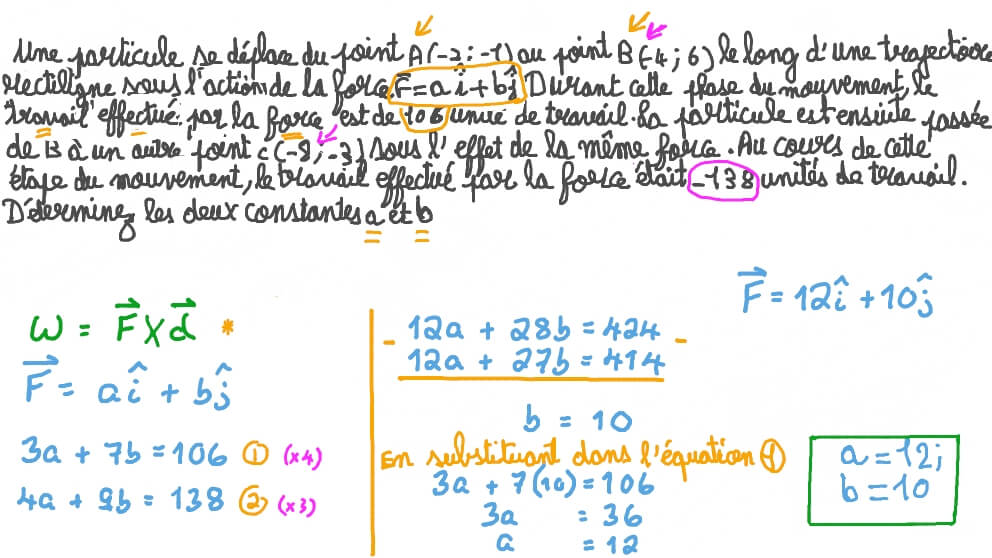 Une particule se déplace du point A(-7; -1) au point B(-4; 6) le long d'une trajectoire
rectiligne sous l'action de la force F⃗=aî+bĵ. Durant cette phase du mouvement, le
travail effectué par la force est de 106 unité de travail. La particule est ensuite passée
de B à un autre point c(-8; -3) sous l'effet de la même force. Au cours de cette
étape du mouvement, le travail effectué par la force était -138 unités de travail.
Déterminez les deux constantes a et b
F⃗ = 12î + 10ĵ
W = F⃗ X d⃗ *
F⃗ = aî + bĵ
3a + 7b = 106 ① (x4)
4a + 9b = 138 ② (x3)
- 12a + 28b = 424 -
12a + 27b = 414
b = 10
En substituant dans l'équation ①
3a + 7(10) = 106
3a = 36
a = 12
a = 12;
b = 10